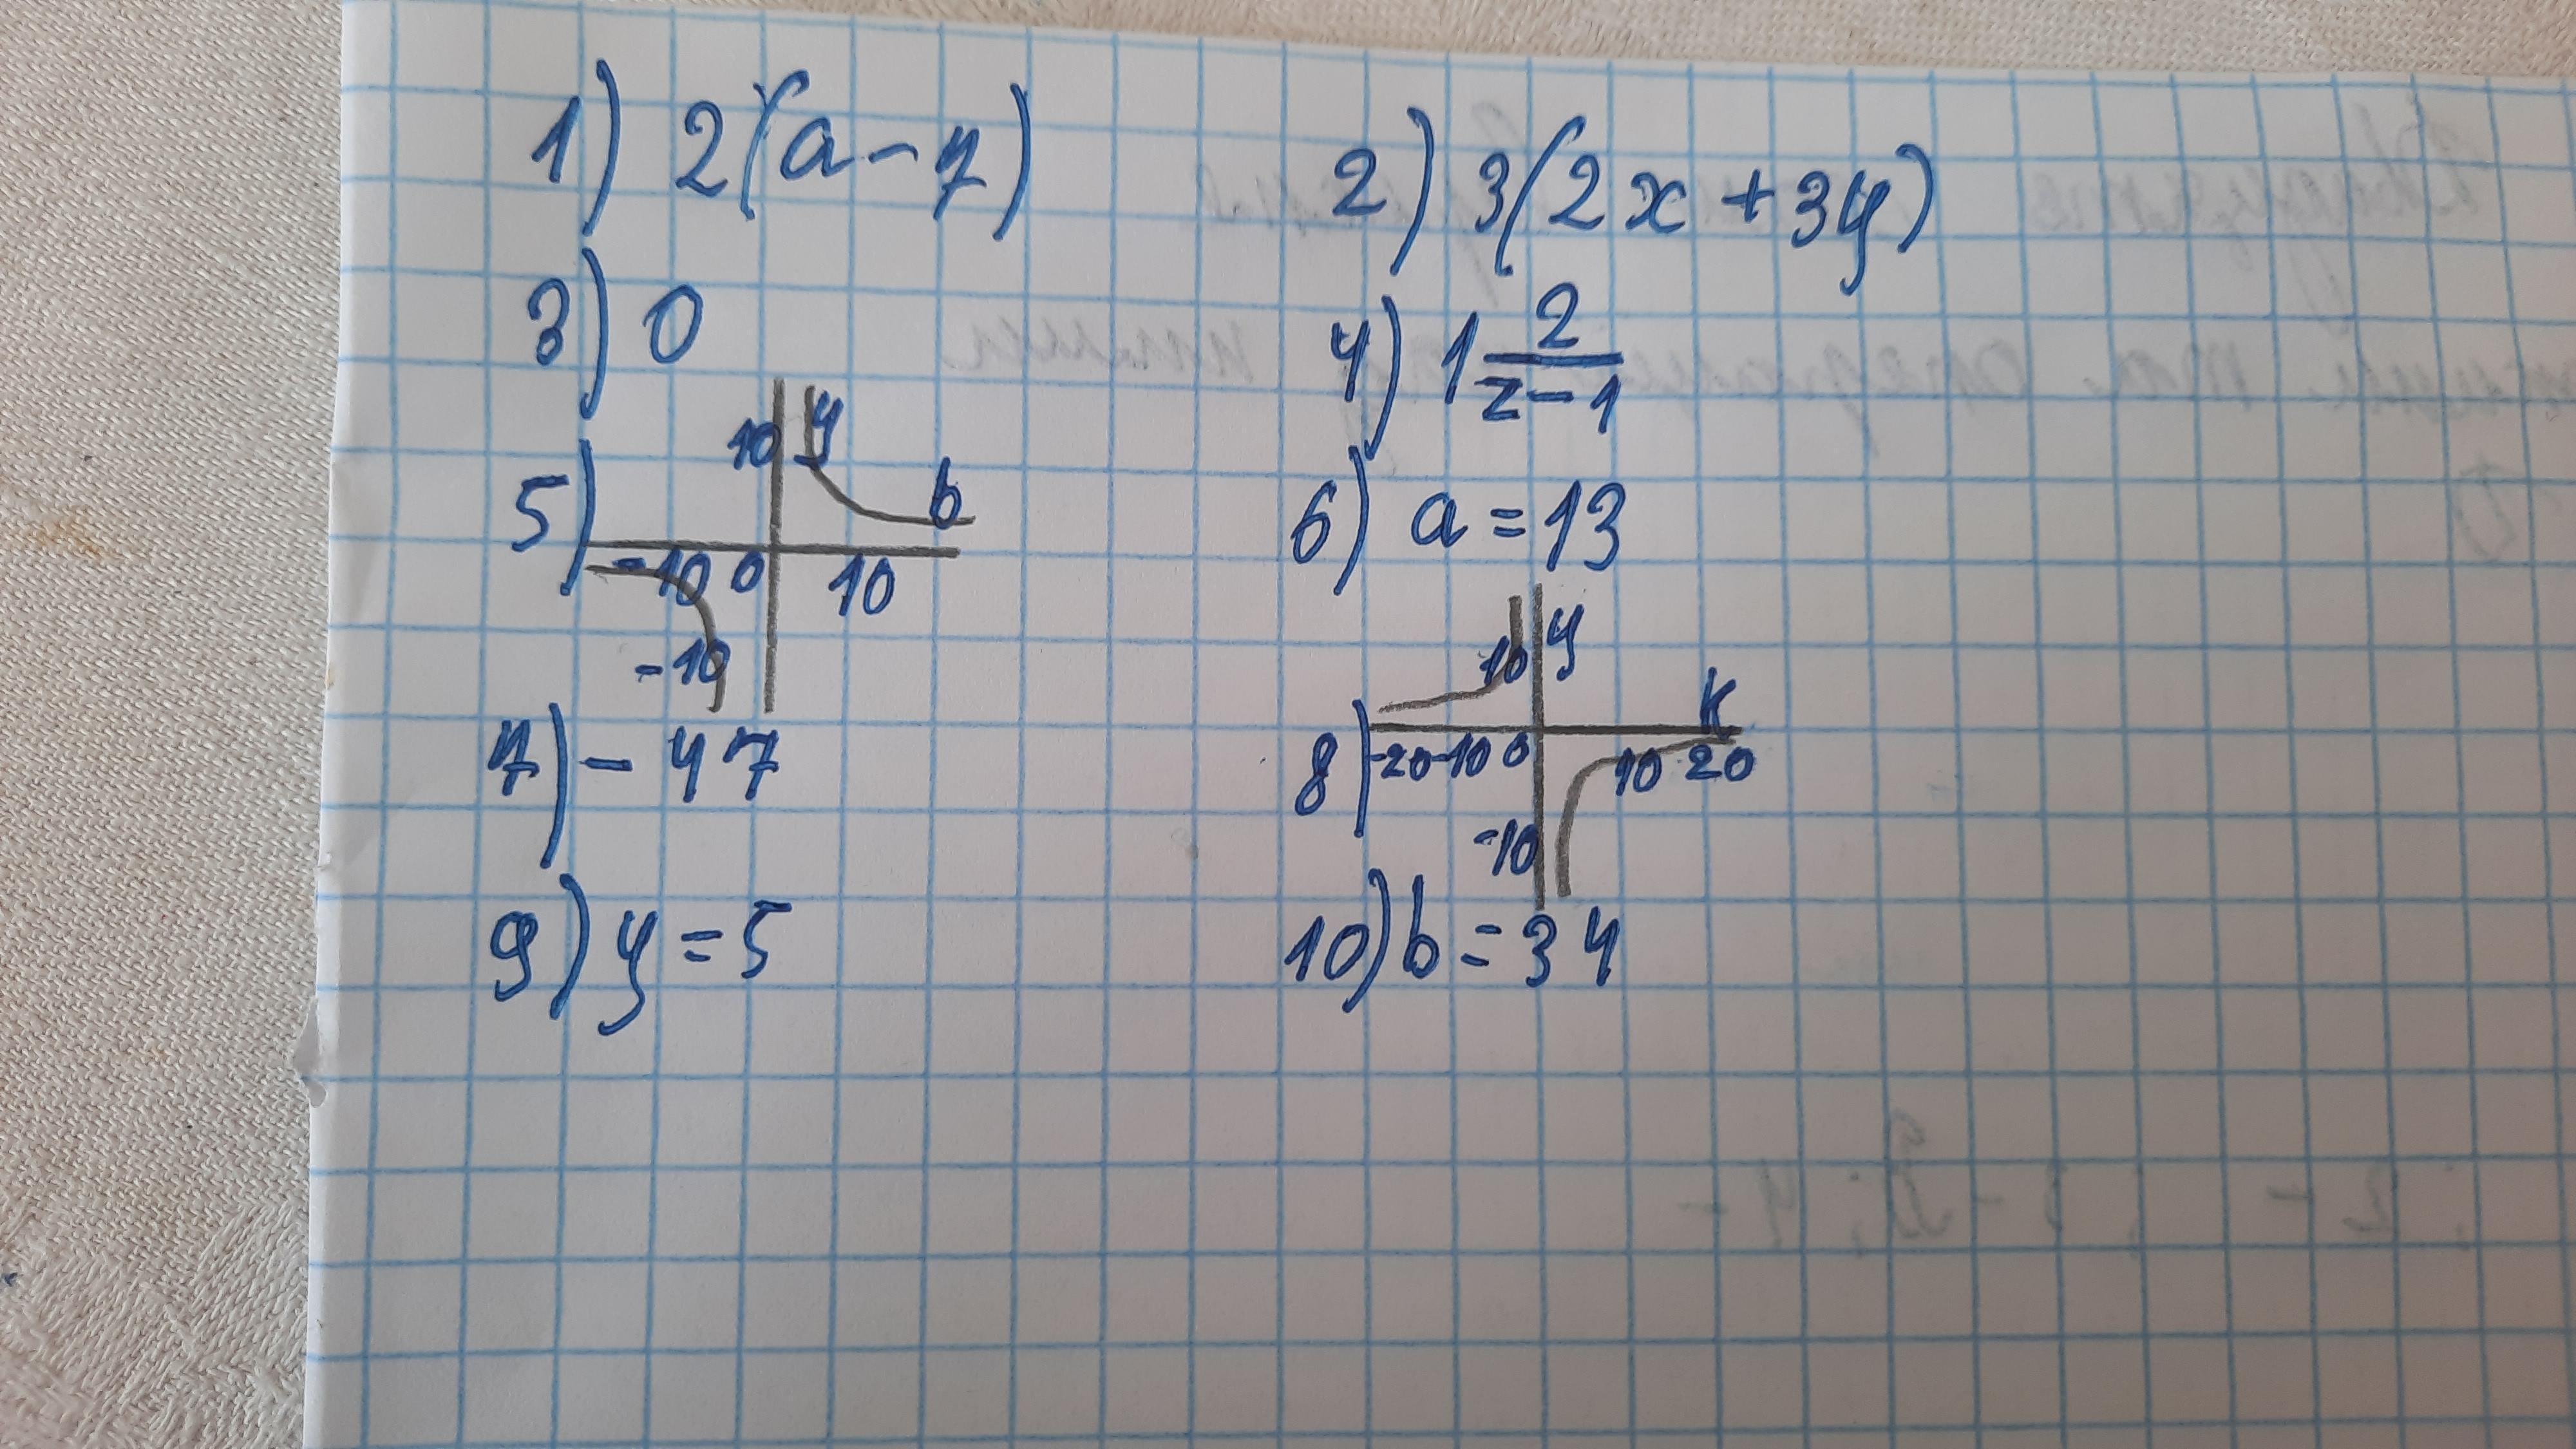 1) 2(a-7)
2) 3(2x+3y)
3) 0
4) 1 2/(z-1)
5) 10 y b -10 0 10 -10
6) a=13
7) -47
8) 10 y k -20 -10 0 10 20 -10
9) y=5
10) b=34